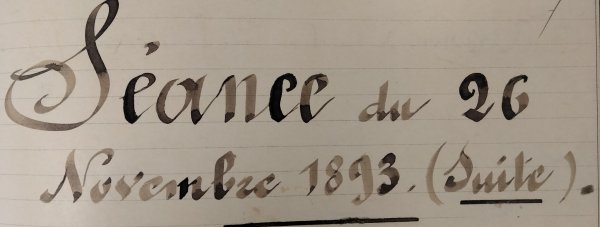 Séance du 26
Novembre 1893. (Suite).